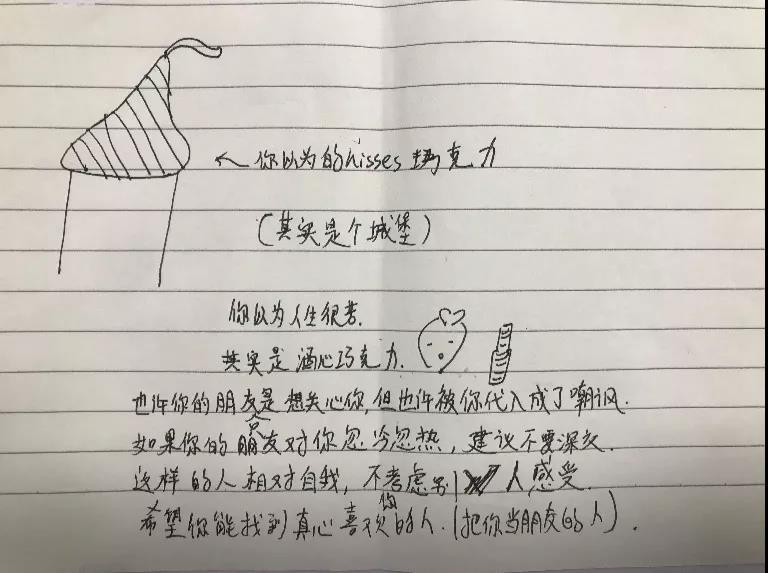 你以为的kisses巧克力
(其实是个城堡)
你以为人生很苦.
其实是酒心巧克力.
也许你的朋友只是想关心你,但也许被你代入成了嘲讽.
如果你的朋友对你忽冷忽热,建议不要深交.
这样的人相对自我,不考虑别人感受.
希望你能找到真心喜欢你的人.(把你当朋友的人).